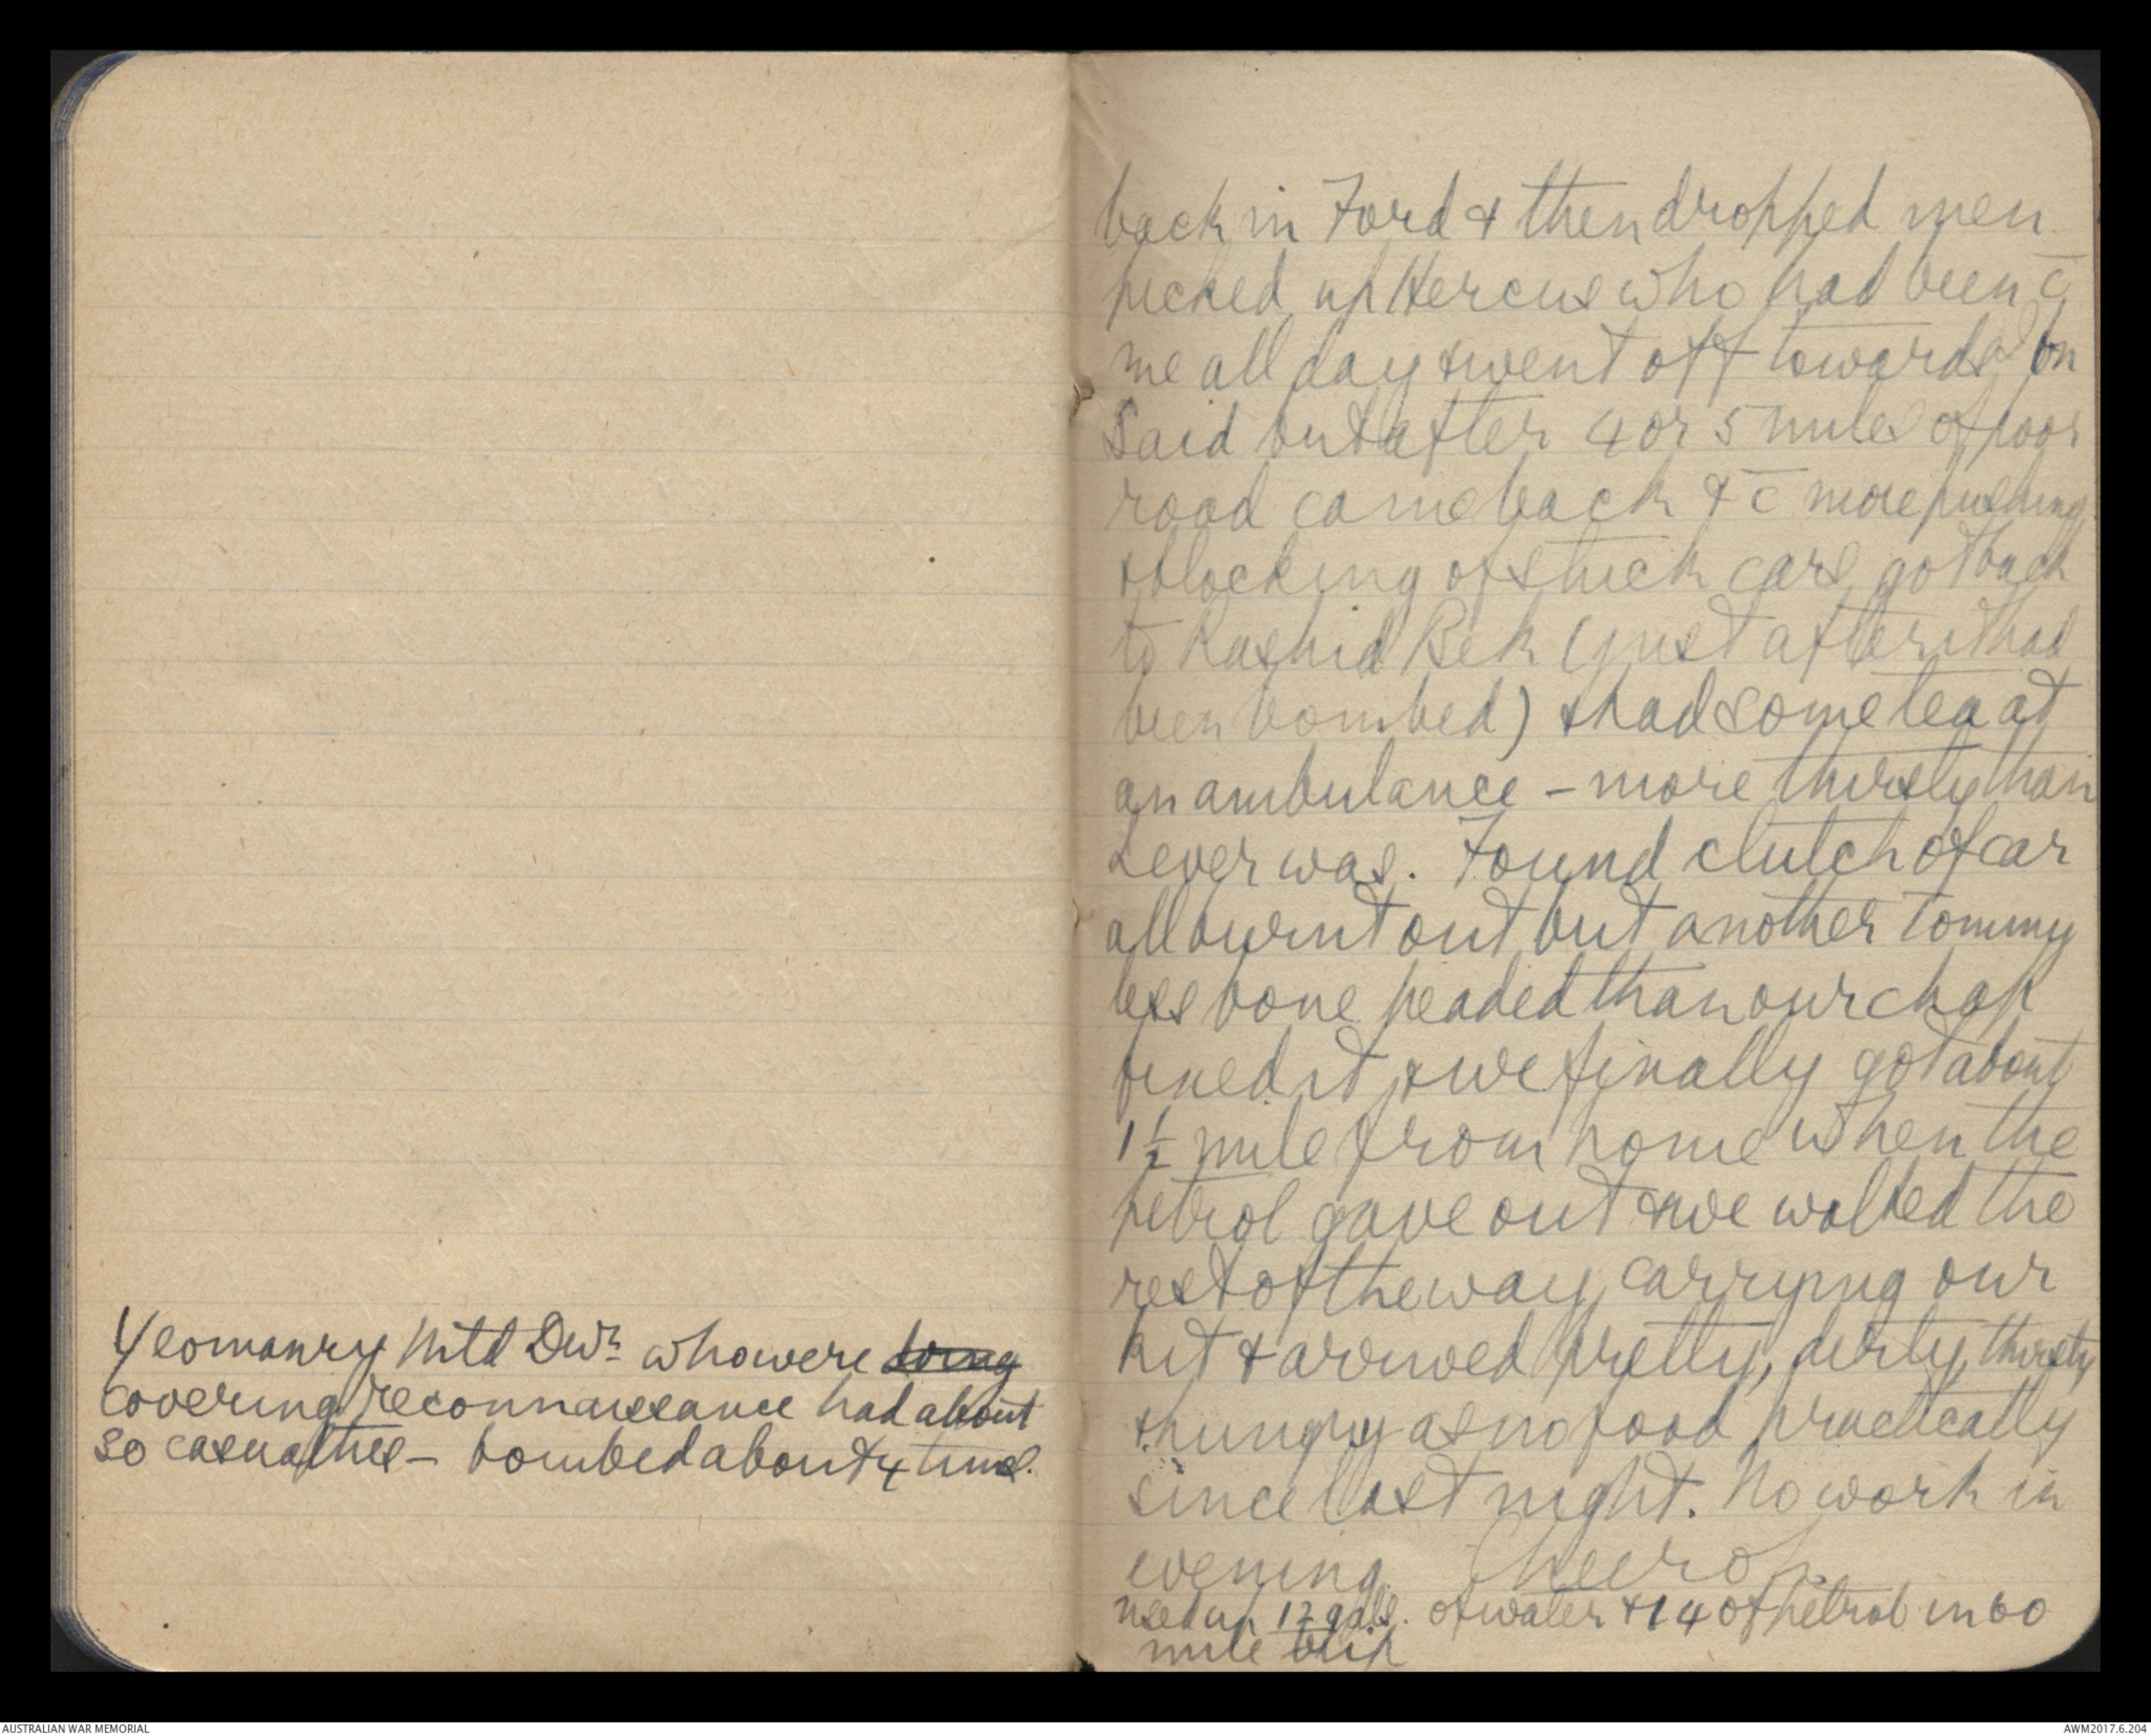 Yeomanry Mtd Divn. who were doing
covering reconnaissance had about
50 casualties – bombed about 4 times.
back in Ford & then dropped men
picked up Hercus who had been c̄
me all day & went off towards El Bn
Said but after 4 or 5 miles of poor
road came back & c̄ more pushing
& blocking of stuck cars got back
to Rashid Bek (just after it had
been bombed) & had some tea at
an ambulance – more thirsty than
I ever was. Found clutch of car
all burnt out but another Tommy
less bone headed than our chap
fixed it & we finally got about
1½ mile from home when the
petrol gave out & we walked the
rest of the way, carrying our
kit & arrived pretty, dirty, thirsty
& hungry as no food practically
since last night. No work in
evening. Cheero.
used up 12 gals. of water & 14 of petrol in 60
mile trip
AUSTRALIAN WAR MEMORIAL
AWM2017.6.204